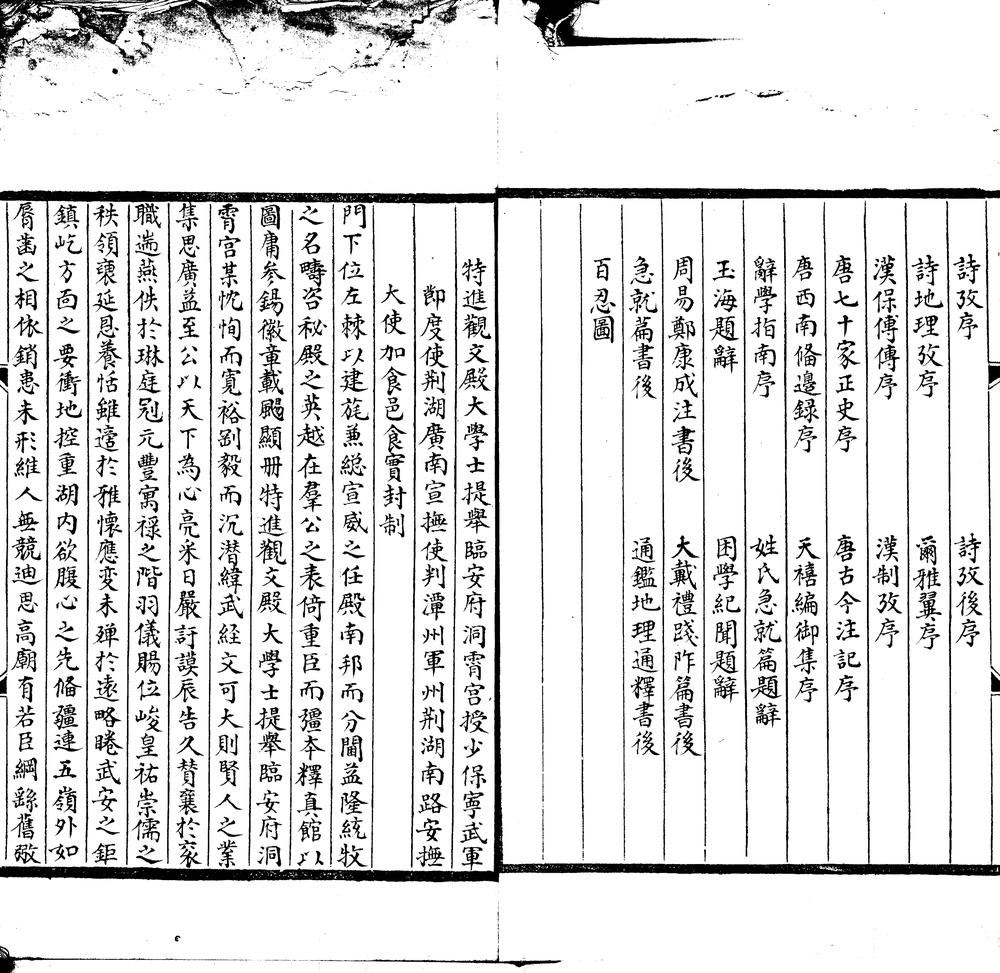 詩攷序　詩攷後序
詩地理攷序　爾雅翼序
漢保傅傳序　漢制攷序
唐七十家正史序　唐古今注記序
唐西南備邊録序　天禧編御集序
辭學指南序　姓氏急就篇題辭
玉海題辭　困學紀聞題辭
周易鄭康成注書後　大戴禮踐阼篇書後
急就篇書後　通鑑地理通釋書後
百忍圖
特進觀文殿大學士提舉臨安府洞霄宮授少保寧武軍
節度使荆湖廣南宣撫使判潭州軍州荆湖南路安撫
大使加食邑食實封制
門下位左棘以建旄兼總宣威之任殿南邦而分閫益隆統牧
之名疇咨秘殿之英越在羣公之表倚重臣而彊本釋真館以
圖庸參錫徽章載颺顯册特進觀文殿大學士提舉臨安府洞
霄宮某忱恂而寬裕剛毅而沉潛緯武経文可大則賢人之業
集思廣益至公以天下為心亮采日嚴訏謨辰告久賛襄於家
職遄燕佚於琳庭冠元豐寓禄之階羽儀賜位峻皇祐崇儒之
秩領褒延恩養恬雖適於雅懷應変未殫於遠略睠武安之鉅
鎮屹方面之要衝地控重湖内欲腹心之先備疆連五嶺外如
脣齒之相依銷患未形維人無競迪思高廟有若臣綱繇舊弼